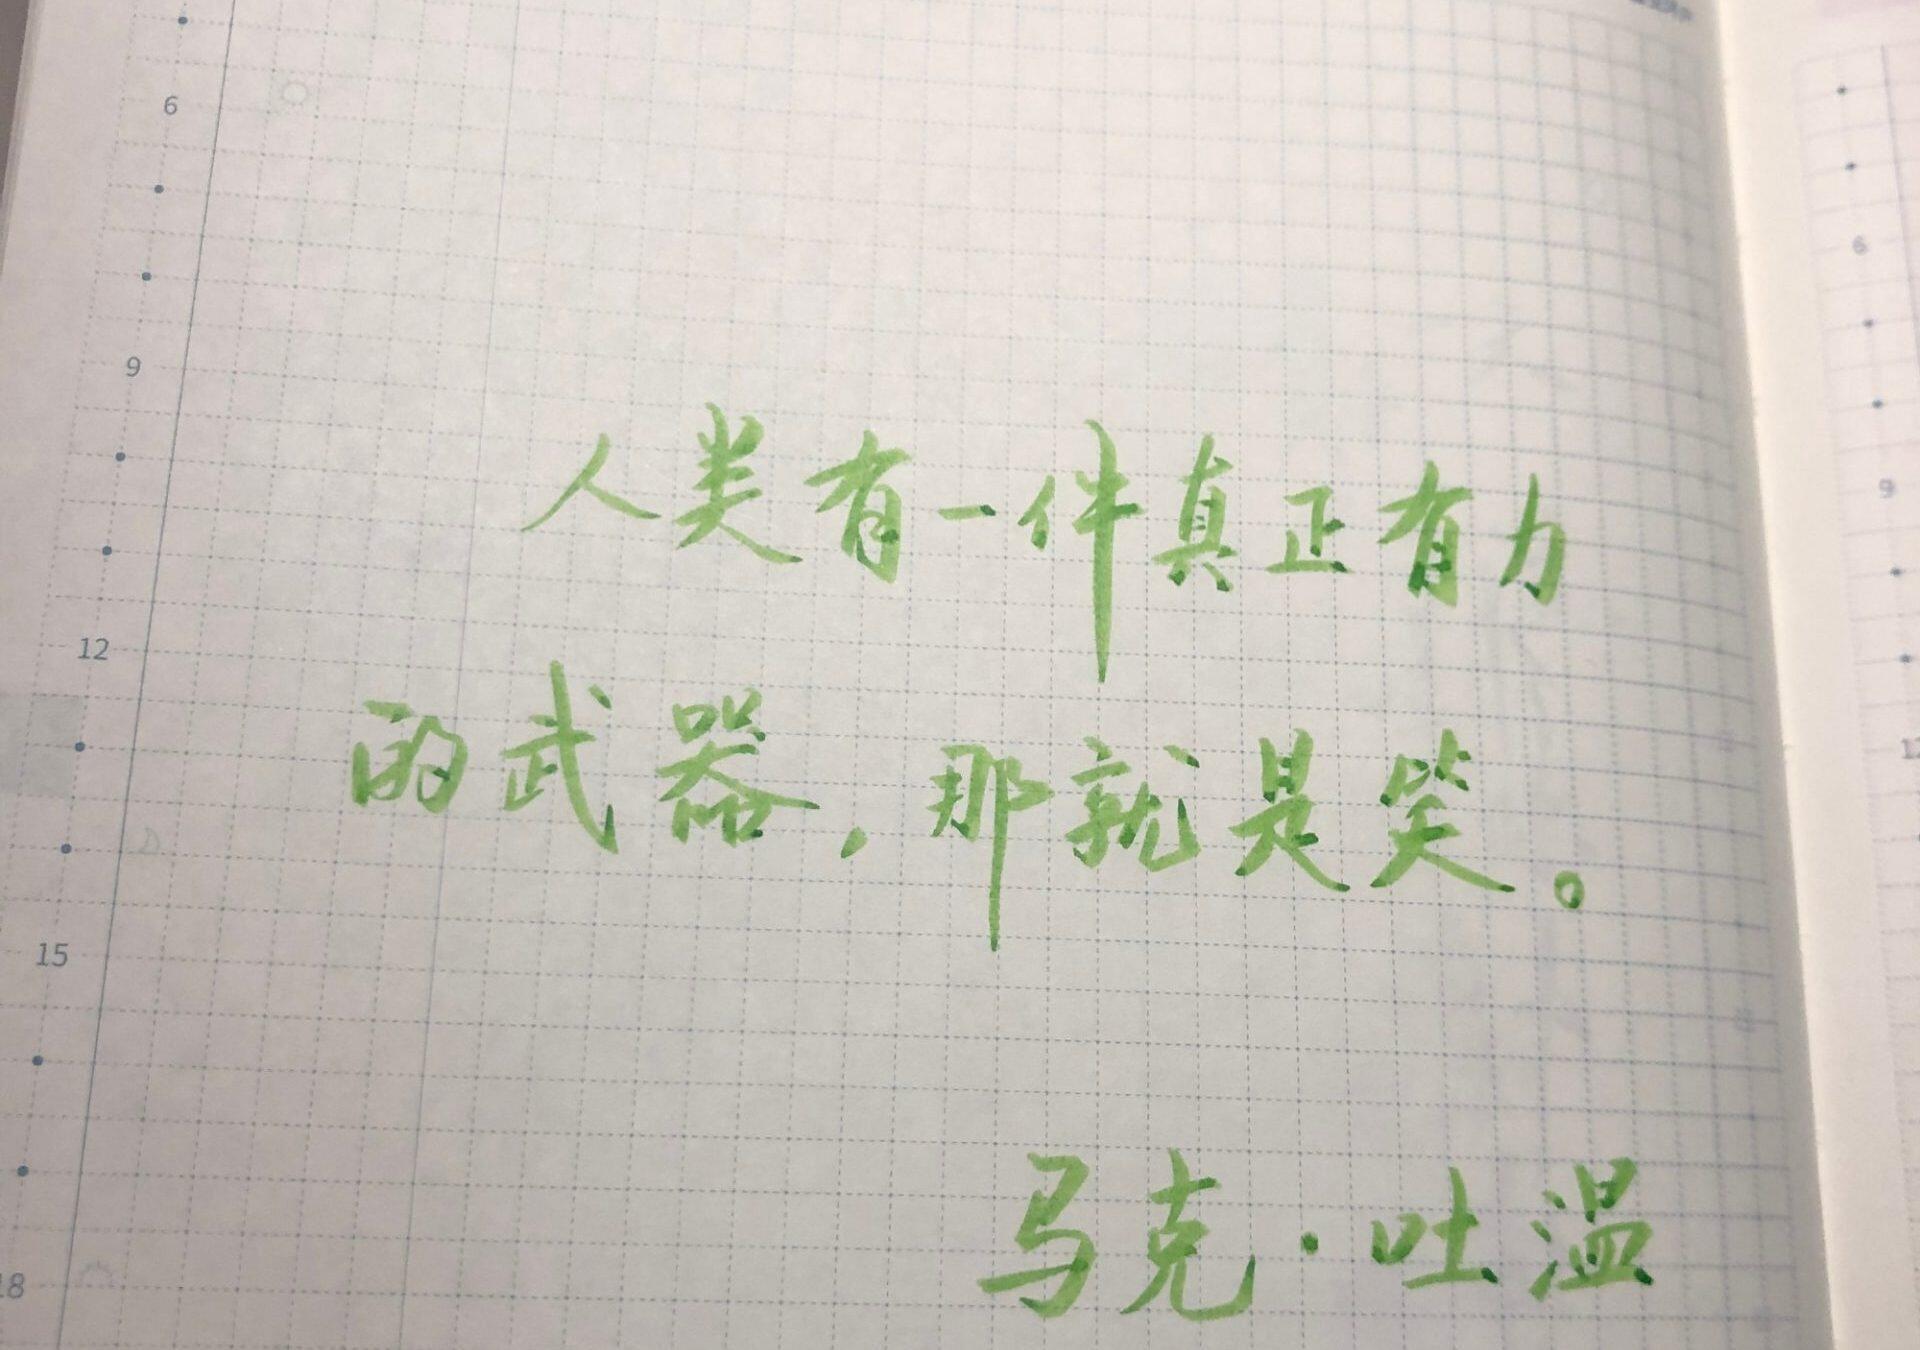 6
9
12
15
18
人类有一件真正有力
的武器，那就是笑。
马克·吐温
6
9